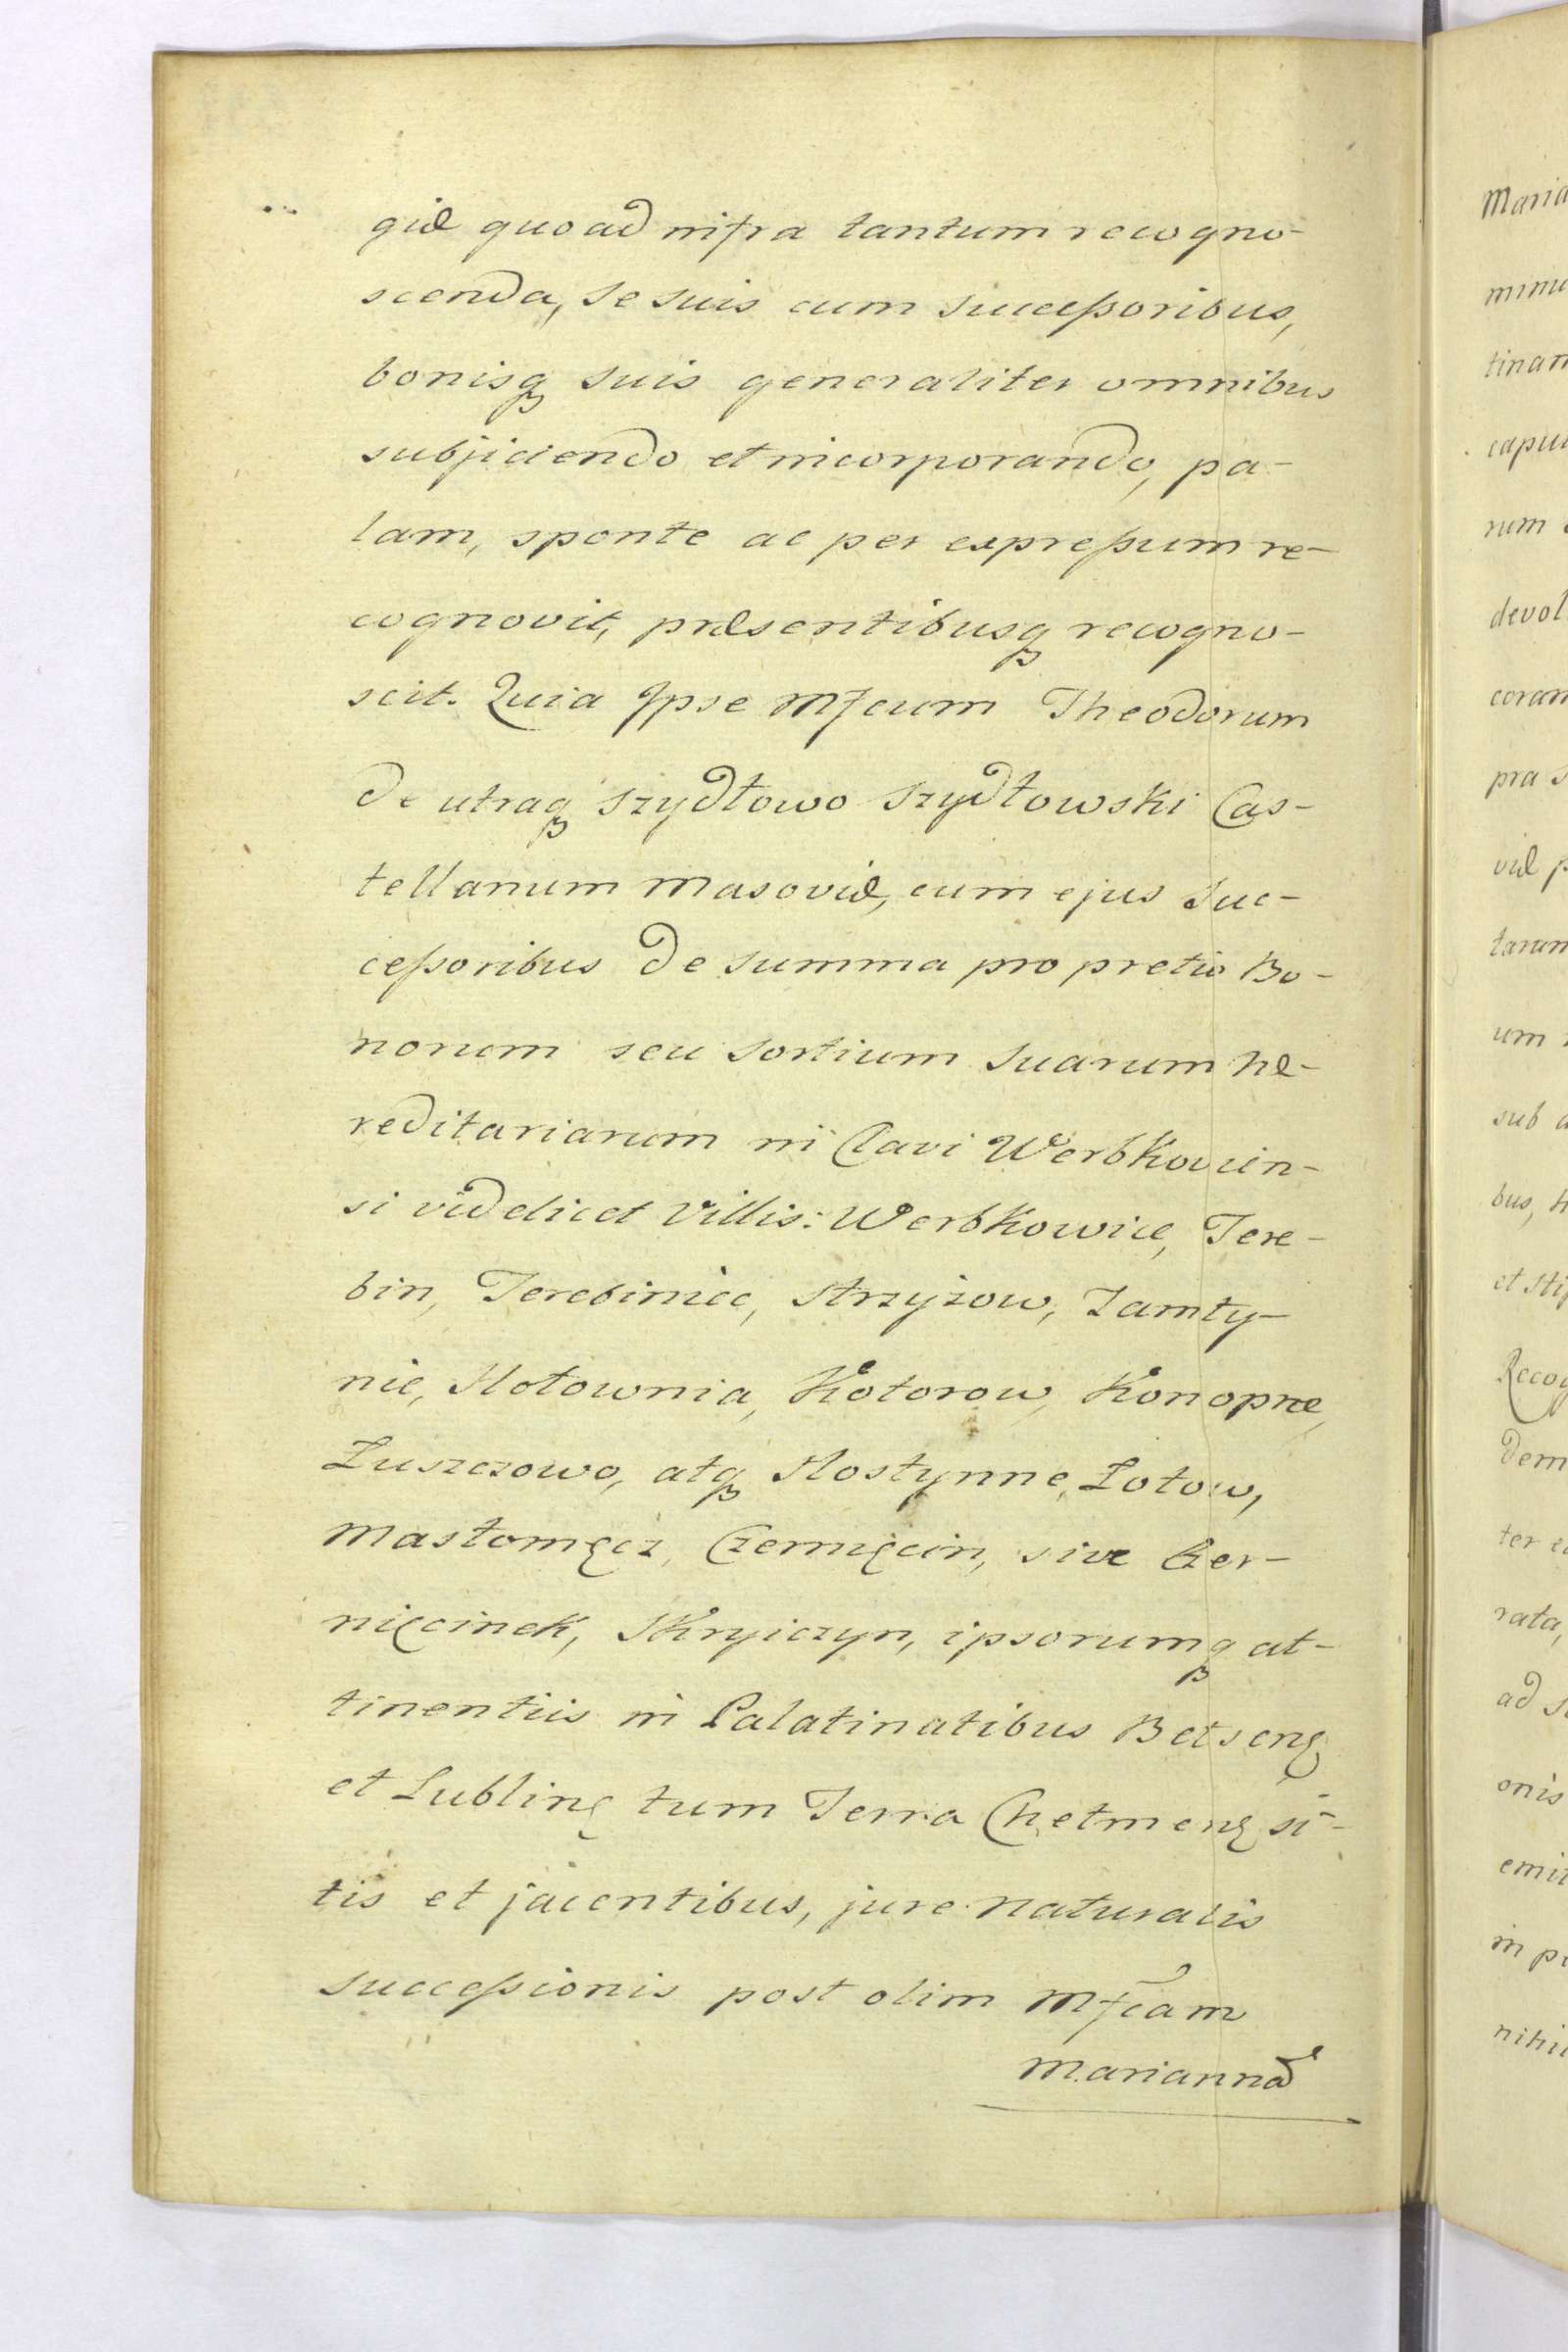 giæ quoad infra tantum recogno-
scenda, se suis cum Successoribus,
bonisq suis generaliter omnibus
subjiciendo et incorporando, pa-
lam, sponte ac per expressum re-
cognovit, præsentibusq recogno-
scit. Quia Ipse Mfcum Theodorum
de utraq Szydłowo Szydłowski Cas-
tellanum Masoviæ, cum ejus Suc-
cessoribus de summa pro pretio Bo-
norum seu Sortium Suarum hæ-
reditariarum in Clavi Werbkovien-
si videlicet Villis: Werbkowice, Tere-
bin, Terebiniec, Strzyżow, Zamły-
nie, Hołownia, Kotorow, Konopne,
Łuszczowo, atq Hostynne, Łotow,
Masłomęcz, Czernięcin, sive Czer-
nięcinek, Skryiczyn, ipsorumq at-
tinentiis in Palatinatibus Bełsenę
et Lublinę tum Terra Chełmenę si-
tis et jacentibus, jure naturalis
successionis post olim Mfcam
Mariannã
Maria
minu
tinam
capu
rum
devol
coram
pra s
viæ p
tarum
um
sub a
bus, h
et sti
Recog
dem
ter e
rata,
ad s
onis
emi
in p
nihil